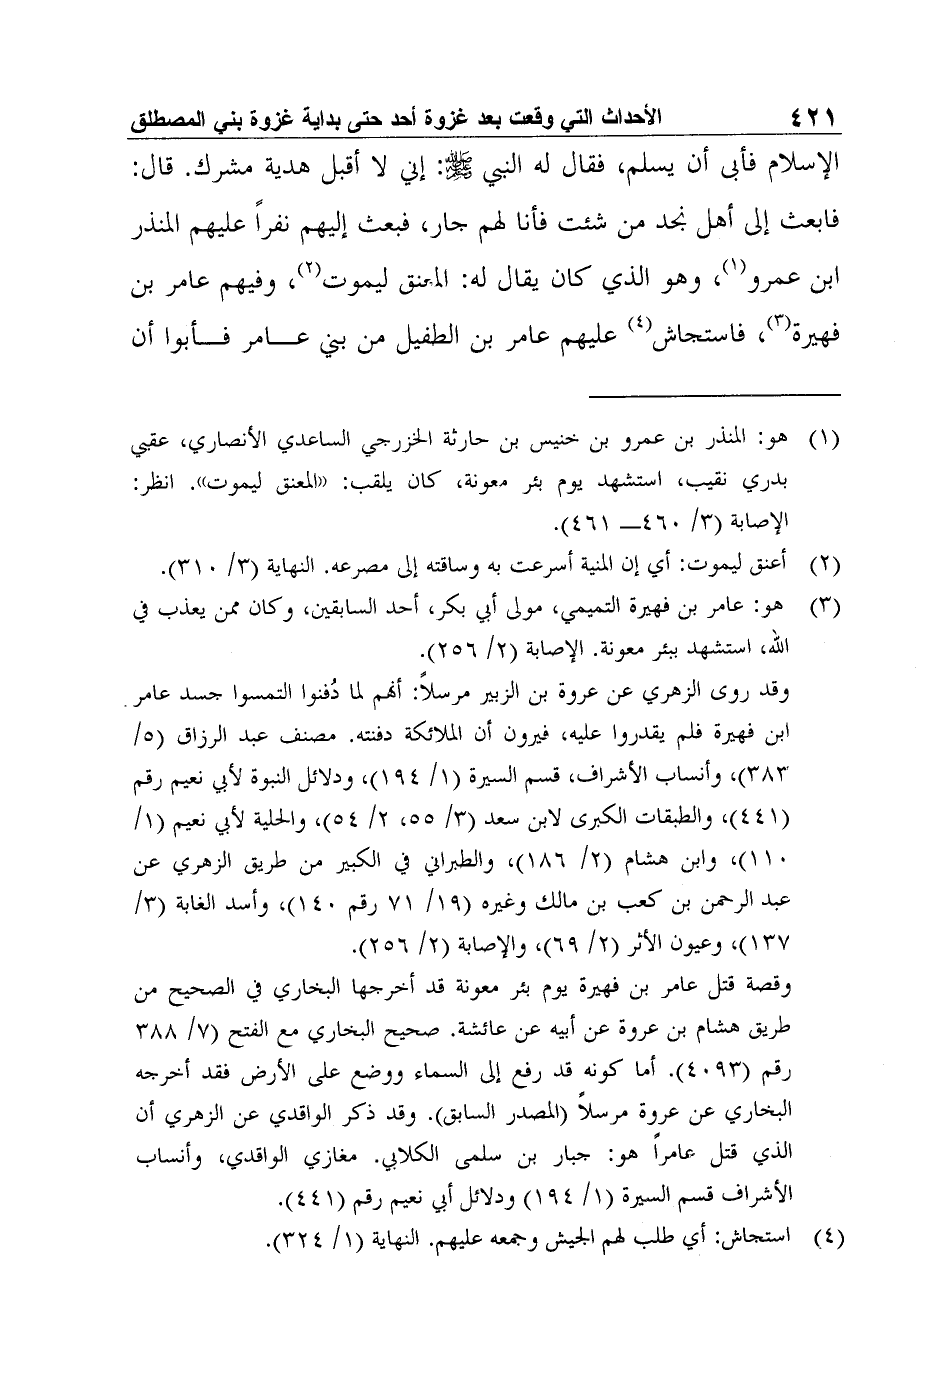 ٤٢١ الأحداث التي وقعت بعد غزوة أحد حتى بداية غزوة بني المصطلق
الإسلام فأبى أن يسلم، فقال له النبي ﷺ: إني لا أقبل هدية مشرك. قال:
فابعث إلى أهل نجد من شئت فأنا لهم جار، فبعث إليهم نفراً عليهم المنذر
ابن عمرو(١)، وهو الذي كان يقال له: المعنق ليموت(٢)، وفيهم عامر بن
فهيرة(٣)، فاستجاش(٤) عليهم عامر بن الطفيل من بني عـــامر فـــأبوا أن
(١) هو: المنذر بن عمرو بن خنيس بن حارثة الخزرجي الساعدي الأنصاري، عقبي
بدري نقيب، استشهد يوم بئر معونة، كان يلقب: «المعنق ليموت». انظر:
الإصابة (٣/ ٤٦٠ــ ٤٦١).
(٢) أعنق ليموت: أي إن المنية أسرعت به وساقته إلى مصرعه. النهاية (٣/ ٣١٠).
(٣) هو: عامر بن فهيرة التميمي، مولى أبي بكر، أحد السابقين، وكان ممن يعذب في
الله، استشهد ببئر معونة. الإصابة (٢/ ٢٥٦).
وقد روى الزهري عن عروة بن الزبير مرسلاً: أنهم لما دُفنوا التمسوا جسد عامر
ابن فهيرة فلم يقدروا عليه، فيرون أن الملائكة دفنته. مصنف عبد الرزاق (٥/
٣٨٣)، وأنساب الأشراف، قسم السيرة (١/ ١٩٤)، ودلائل النبوة لأبي نعيم رقم
(٤٤١)، والطبقات الكبرى لابن سعد (٣/ ٥٥، ٢/ ٥٤)، والحلية لأبي نعيم (١/
١١٠)، وابن هشام (٢/ ١٨٦)، والطبراني في الكبير من طريق الزهري عن
عبد الرحمن بن كعب بن مالك وغيره (١٩/ ٧١ رقم ١٤٠)، وأسد الغابة (٣/
١٣٧)، وعيون الأثر (٢/ ٦٩)، والإصابة (٢/ ٢٥٦).
وقصة قتل عامر بن فهيرة يوم بئر معونة قد أخرجها البخاري في الصحيح من
طريق هشام بن عروة عن أبيه عن عائشة. صحيح البخاري مع الفتح (٧/ ٣٨٨
رقم (٤٠٩٣). أما كونه قد رفع إلى السماء ووضع على الأرض فقد أخرجه
البخاري عن عروة مرسلاً (المصدر السابق). وقد ذكر الواقدي عن الزهري أن
الذي قتل عامراً هو: جبار بن سلمى الكلابي. مغازي الواقدي، وأنساب
الأشراف قسم السيرة (١/ ١٩٤) ودلائل أبي نعيم رقم (٤٤١).
(٤) استجاش: أي طلب لهم الجيش وجمعه عليهم. النهاية (١/ ٣٢٤).